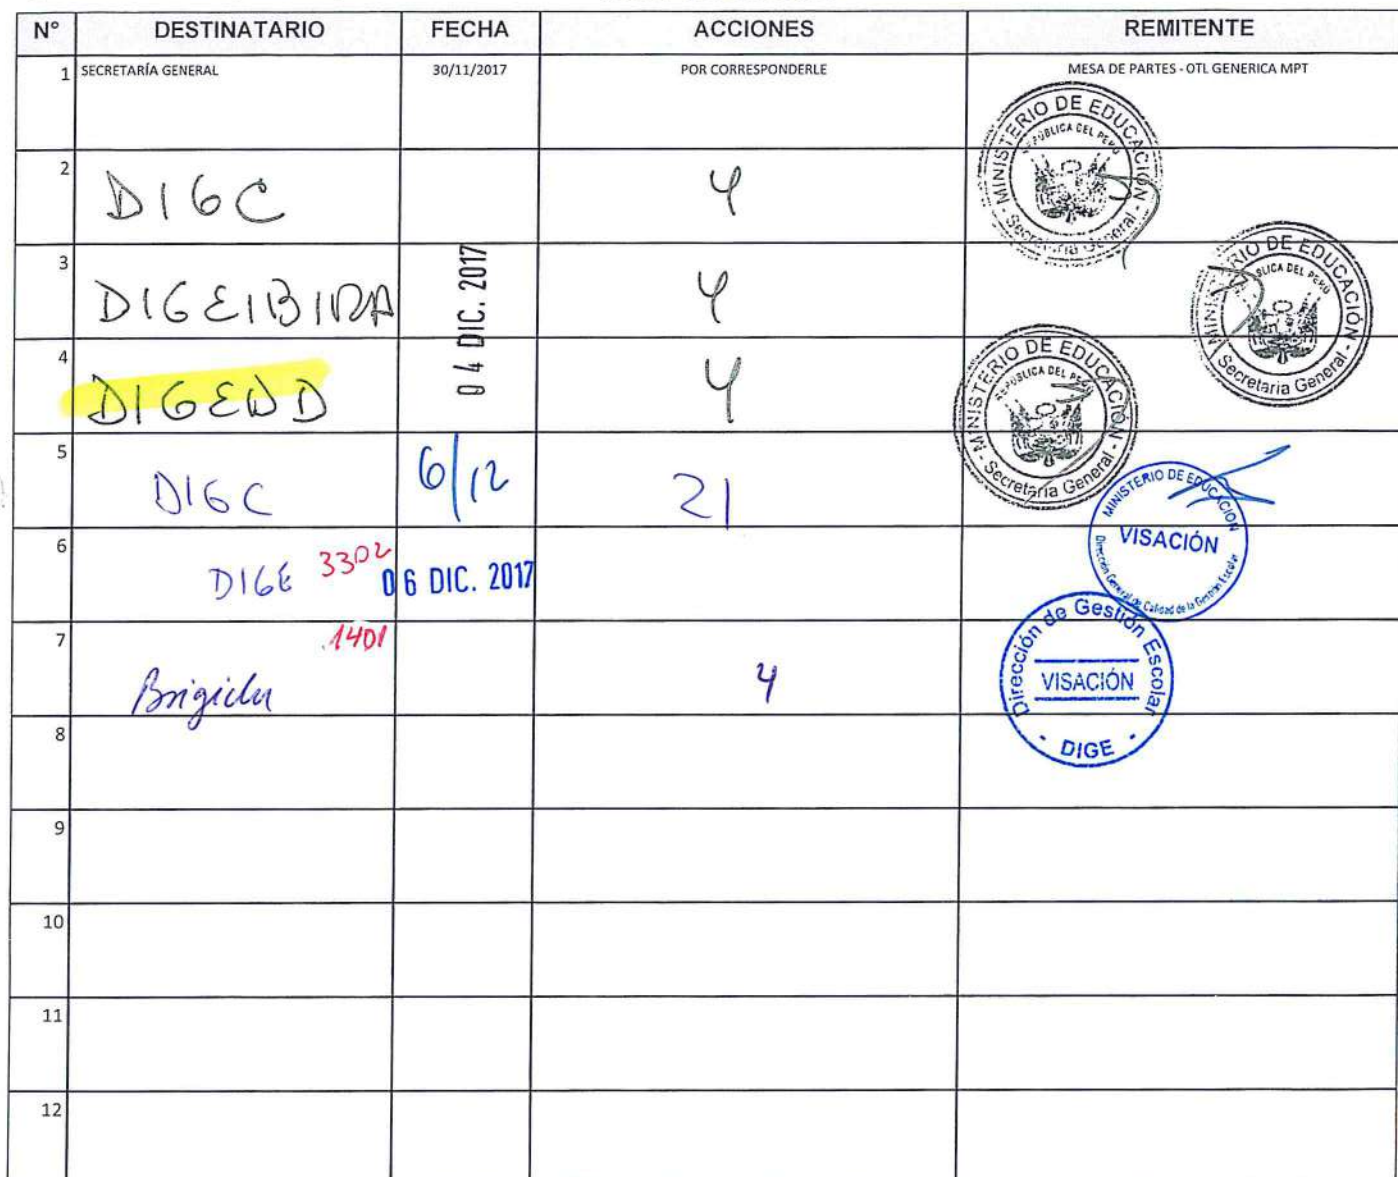 N° DESTINATARIO FECHA ACCIONES REMITENTE
1 SECRETARÍA GENERAL 30/11/2017 POR CORRESPONDERLE MESA DE PARTES - OTL GENERICA MPT
MINISTERIO DE EDUCACIÓN
REPÚBLICA DEL PERÚ
Secretaria General
2 DIGC 4
3 DIGEIBIRA 4
04 DIC. 2017
MINISTERIO DE EDUCACIÓN
REPÚBLICA DEL PERÚ
Secretaria General
4 DIGEDD 4
MINISTERIO DE EDUCACIÓN
REPÚBLICA DEL PERÚ
Secretaria General
5 DIGC 6/12 21
MINISTERIO DE EDUCACION
VISACIÓN
Dirección General de Calidad de la Gestión Escolar
6 DIGE 3302 06 DIC. 2017
7 1401
Brigida 4
Dirección de Gestión Escolar
VISACIÓN
- DIGE -
8
9
10
11
12